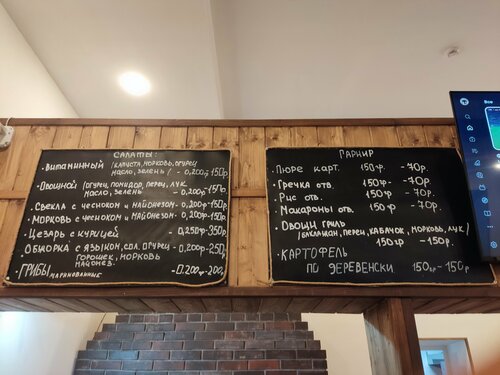 САЛАТЫ:
• Витаминный /капуста, морковь, огурец
масло, зелень/ - 0,200р-150р
• Овощной /огурец, помидор, перец, лук
масло, зелень - 0,200р-150р.
• Свекла с чесноком и майонезом - 0,200р-150р
• Морковь с чесноком и майонезом - 0,200р-150р.
• Цезарь с курицей - 0,250р-350р
• Обжорка с языком, сол. огурец - 0,200р-250р
горошек, морковь
майонез.
• ГРИБЫ маринованные - 0.200-200р
ГАРНИР
• Пюре карт. 150гр - 70р.
• Гречка отв. 150гр - 70р.
• Рис отв. 150гр - 70р.
• Макароны отв. 150гр - 70р.
• Овощи гриль
/баклашан, перец, кабачок, морковь, лук/
150гр - 150р.
• КАРТОФЕЛЬ
ПО ДЕРЕВЕНСКИ 150гр - 150р
Все